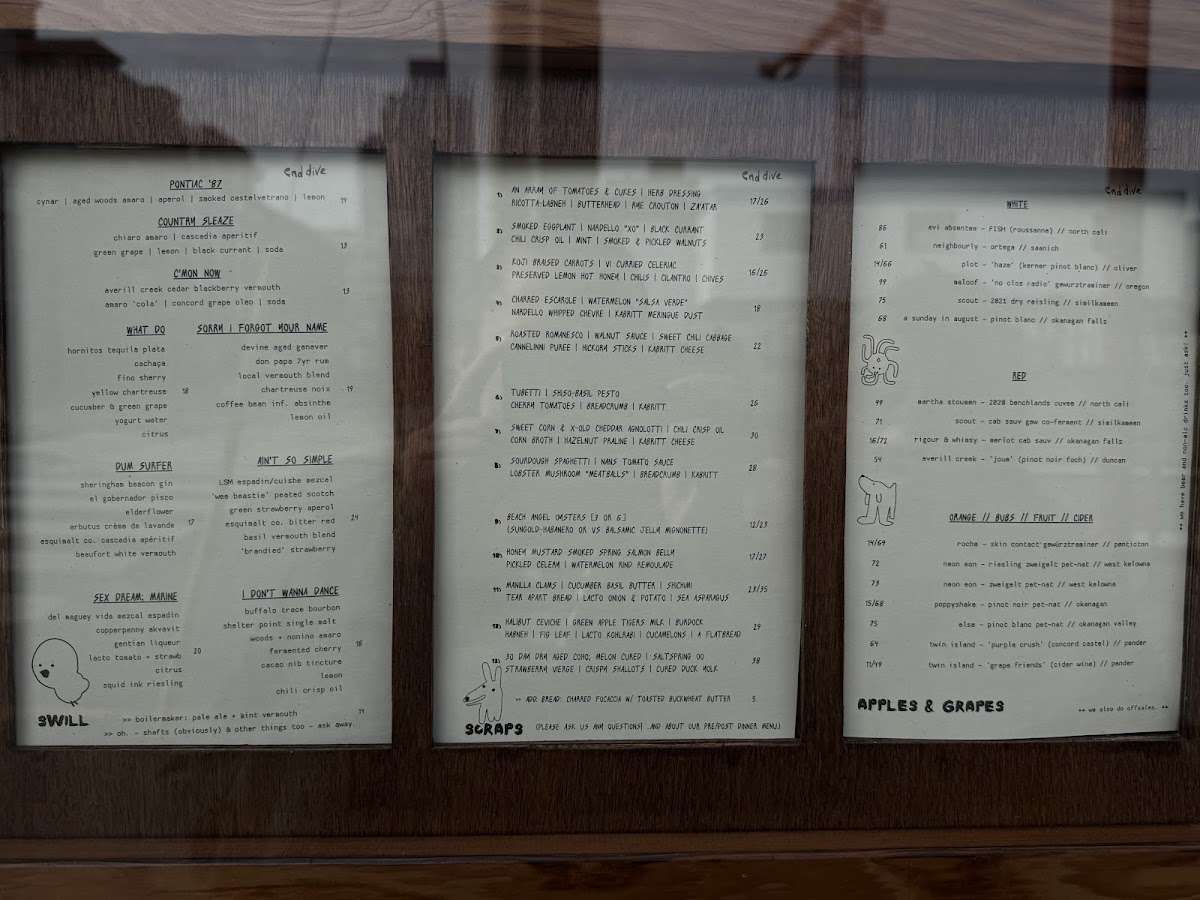 end dive
PONTIAC '87
cynar | aged woods amaro | aperol | smoked castelvetrano | lemon
COUNTRY SLEAZE
chiaro amaro | cascadia aperitif
green grape | lemon | black currant | soda 13
C'MON NOW
averill creek cedar blackberry vermouth
amaro 'cola' | concord grape oleo | soda 13
WHAT DO
hornitos tequila plata
cachaça
fino sherry
yellow chartreuse 18
cucumber & green grape
yogurt water
citrus
SORRY I FORGOT YOUR NAME
devine aged genever
don papa 7yr rum
local vermouth blend
chartreuse noix 19
coffee bean inf. absinthe
lemon oil
DUM SURFER
sheringham beacon gin
el gobernador pisco
elderflower
arbutus crème de lavande 17
esquimalt co. cascadia apéritif
beaufort white vermouth
AIN'T SO SIMPLE
LSM espadin/cuishe mezcal
'wee beastie' peated scotch
green strawberry aperol
esquimalt co. bitter red 24
basil vermouth blend
'brandied' strawberry
SEX DREAM; MARINE
del maguey vida mezcal espadin
copperpenny akvavit
gentian liqueur
lacto tomato + strawb 20
citrus
squid ink riesling
I DON'T WANNA DANCE
buffalo trace bourbon
shelter point single malt
woods + nonino amaro
fermented cherry 18
cacao nib tincture
lemon
chili crisp oil
SWILL
>> boilermaker: pale ale + mint vermouth
>> oh. - shafts (obviously) & other things too - ask away.
end dive
1) AN ARRAY OF TOMATOES & CUKES | HERB DRESSING
RICOTTA-LABNEH | BUTTERHEAD | RYE CROUTON | ZA'ATAR 17/26
2) SMOKED EGGPLANT | NARDELLO "XO" | BLACK CURRANT
CHILI CRISP OIL | MINT | SMOKED & PICKLED WALNUTS 23
3) KOJI BRAISED CARROTS | VI CURRIED CELERIAC
PRESERVED LEMON HOT HONEY | CHILIS | CILANTRO | CHIVES 16/26
4) CHARRED ESCAROLE | WATERMELON "SALSA VERDE"
NARDELLO WHIPPED CHEVRE | KABRITT MERINGUE DUST 18
5) ROASTED ROMANESCO | WALNUT SAUCE | SWEET CHILI CABBAGE
CANNELINNI PUREE | HICKORY STICKS | KABRITT CHEESE 22
6) TUBETTI | SHISO-BASIL PESTO
CHERRY TOMATOES | BREADCRUMB | KABRITT 26
7) SWEET CORN & X-OLD CHEDDAR AGNOLOTTI | CHILI CRISP OIL
CORN BROTH | HAZELNUT PRALINE | KABRITT CHEESE 30
8) SOURDOUGH SPAGHETTI | NANS TOMATO SAUCE
LOBSTER MUSHROOM "MEATBALLS" | BREADCRUMB | KABRITT 28
9) BEACH ANGEL OYSTERS [3 OR 6]
(SUNGOLD-HABANERO OR VS BALSAMIC JELLY MIGNONETTE) 12/23
10) HONEY MUSTARD SMOKED SPRING SALMON BELLY
PICKLED CELERY | WATERMELON RIND REMOULADE 17/27
11) MANILLA CLAMS | CUCUMBER BASIL BUTTER | SHICHIMI
TEAR APART BREAD | LACTO ONION & POTATO | SEA ASPARAGUS 23/35
12) HALIBUT CEVICHE | GREEN APPLE TIGERS MILK | BURDOCK
HABNEH | FIG LEAF | LACTO KOHLRABI | CUCAMELONS | A FLATBREAD 29
30 DAY DRY AGED COHO, MELON CURED | SALTSPRING OO
STRAWBERRY VIERGE | CRISPY SHALLOTS | CURED DUCK YOLK 38
>> ADD BREAD: CHARRED FOCACCIA W/ TOASTED BUCKWHEAT BUTTER 5
SCRAPS
(PLEASE ASK US ANY QUESTIONS! ..AND ABOUT OUR PRE/POST DINNER MENU)
end dive
WHITE
86 avi absentee - FISH (roussanne) // north cali
61 neighbourly - ortega // saanich
14/66 plot - 'haze' (kerner pinot blanc) // oliver
99 maloof - 'no clos radio' gewurztraminer // oregon
75 scout - 2021 dry reisling // similkameen
68 a sunday in august - pinot blanc // okanagan falls
RED
99 martha stoumen - 2020 benchlands cuvee // north cali
71 scout - cab sauv gew co-ferment // similkameen
16/72 rigour & whimsy - merlot cab sauv // okanagan falls
54 averill creek - 'joue' (pinot noir foch) // duncan
ORANGE // BUBS // FRUIT // CIDER
14/69 roche - skin contact gewürztraminer // penticton
72 neon eon - riesling zweigelt pet-nat // west kelowna
73 neon eon - zweigelt pet-nat // west kelowna
15/68 poppyshake - pinot noir pet-nat // okanagan
75 else - pinot blanc pet-nat // okanagan valley
64 twin island - 'purple crush' (concord castel) // pender
11/49 twin island - 'grape friends' (cider wine) // pender
APPLES & GRAPES
++ we also do offsales. ++
++ we have beer and non-alc drinks too. just ask! ++